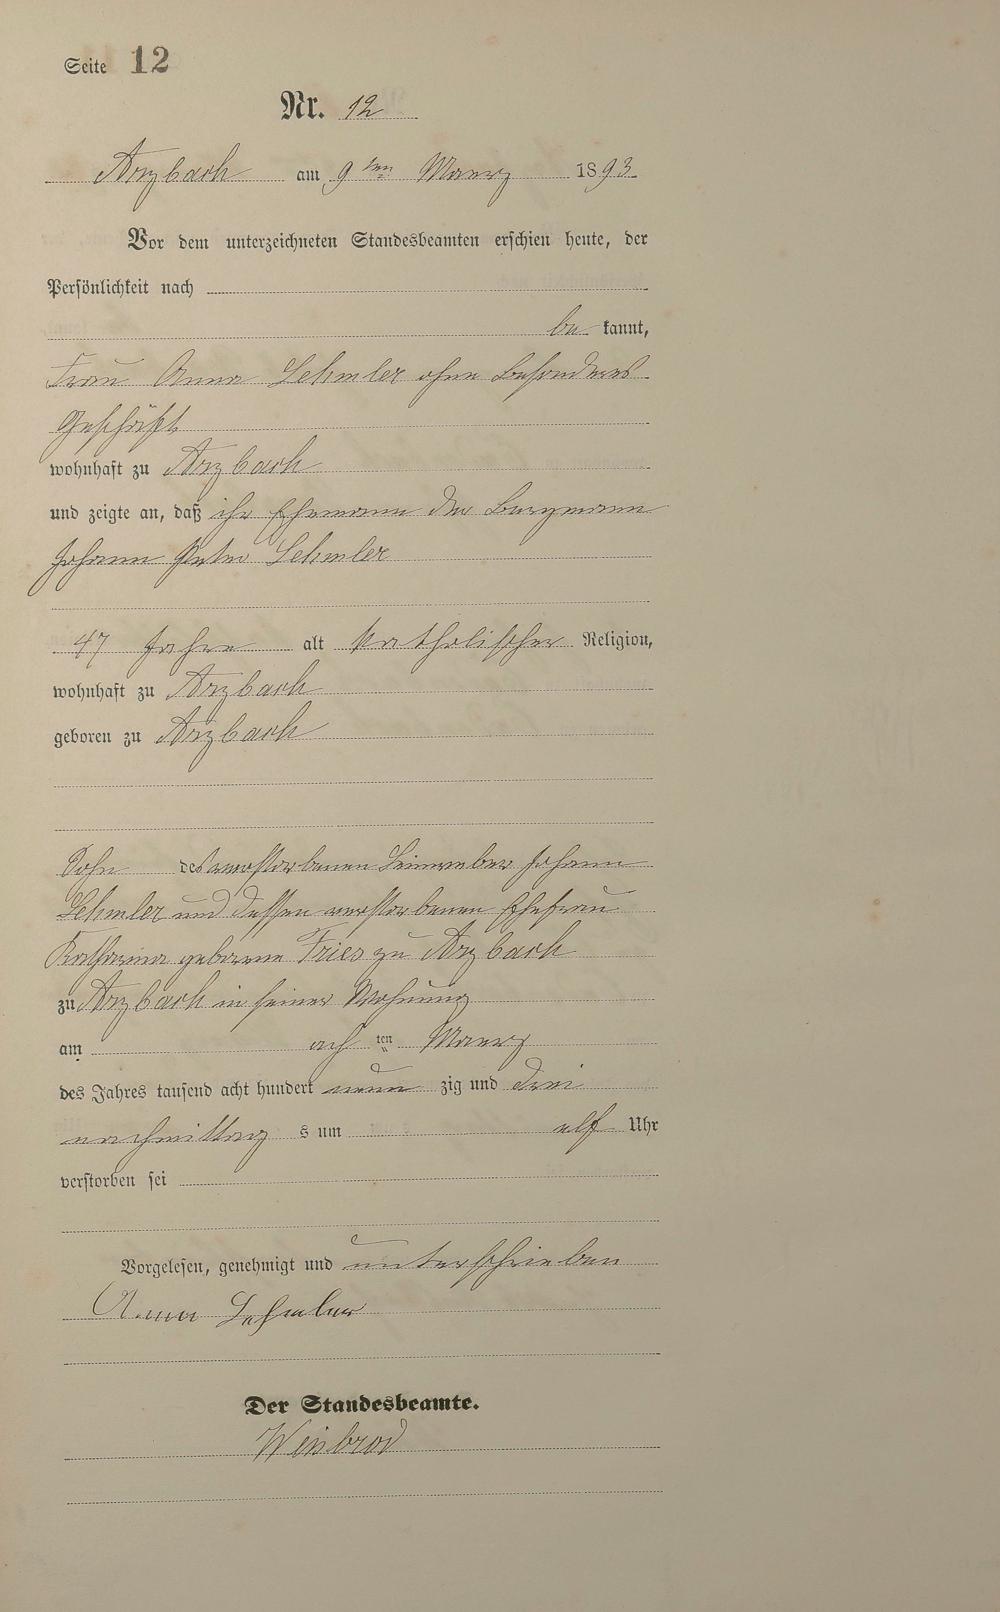 Seite 12
Nr. 12
Arzbach am 9ten Maerz 1893
Vor dem unterzeichneten Standesbeamten erschien heute, der
Persönlichkeit nach
be kannt,
Frau Anna Lehmler ohne besonderes
Geschäft
wohnhaft zu Arzbach
und zeigte an, daß ihr Ehemann der Bergmann
Johann Peter Lehmler
47 Jahre alt katholischer Religion,
wohnhaft zu Arzbach
geboren zu Arzbach
Sohn des verstorbenen Leinweber Johann
Lehmler und dessen verstorbenen Ehefrau
Katharina geborene Fries zu Arzbach
zu Arzbach in seiner Wohnung
am ach ten Maerz
des Jahres tausend acht hundert neun zig und drei
nachmittag s um elf Uhr
verstorben sei
Vorgelesen, genehmigt und unterschrieben
Anna Lehmler
Der Standesbeamte.
Weisbrod